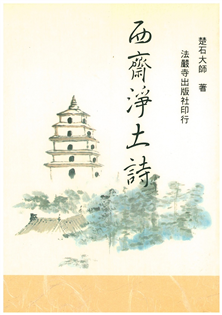 楚石大師 著
法嚴寺出版社印行
西齋淨土詩